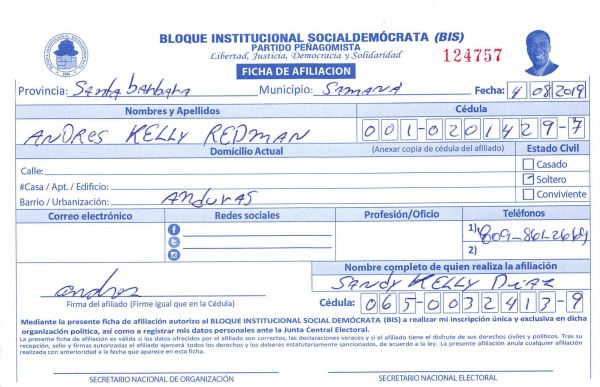 BLOQUE INSTITUCIONAL SOCIALDEMÓCRATA (BIS)
PARTIDO PEÑAGOMISTA
Libertad, Justicia, Democracia y Solidaridad
124757
FICHA DE AFILIACION
Provincia: Santa barbara Municipio: SAMANÁ Fecha: 4 08 2019
Nombres y Apellidos Cédula
ANDRES KELLY REDMAN 001-0201429-7
Domicilio Actual (Anexar copia de cédula del afiliado) Estado Civil
Calle: Casado
#Casa / Apt. / Edificio: Soltero
Barrio / Urbanización: Anduras Conviviente
Correo electrónico Redes sociales Profesión/Oficio Teléfonos
1) 809-861-2669
2)
Nombre completo de quien realiza la afiliación
andres SANDY KELLY DIAZ
Firma del afiliado (Firme igual que en la Cédula) Cédula: 065-0032413-9
Mediante la presente ficha de afiliación autorizo al BLOQUE INSTITUCIONAL SOCIAL DEMÓCRATA (BIS) a realizar mi inscripción única y exclusiva en dicha
organización política, así como a registrar mis datos personales ante la Junta Central Electoral.
La presente ficha de afiliación es válida si los datos ofrecidos por el afiliado son correctos, las declaraciones veraces y si el afiliado tiene el disfrute de sus derechos civiles y políticos. Tras su
recepción, sello y firmas autorizadas el afiliado ejercerá todos los derechos y los deberes estatutariamente sancionados, de acuerdo a la ley. La presente afiliación anula cualquier afiliación
realizada con anterioridad a la fecha que aparece en esta ficha.
SECRETARIO NACIONAL DE ORGANIZACIÓN SECRETARIO NACIONAL ELECTORAL